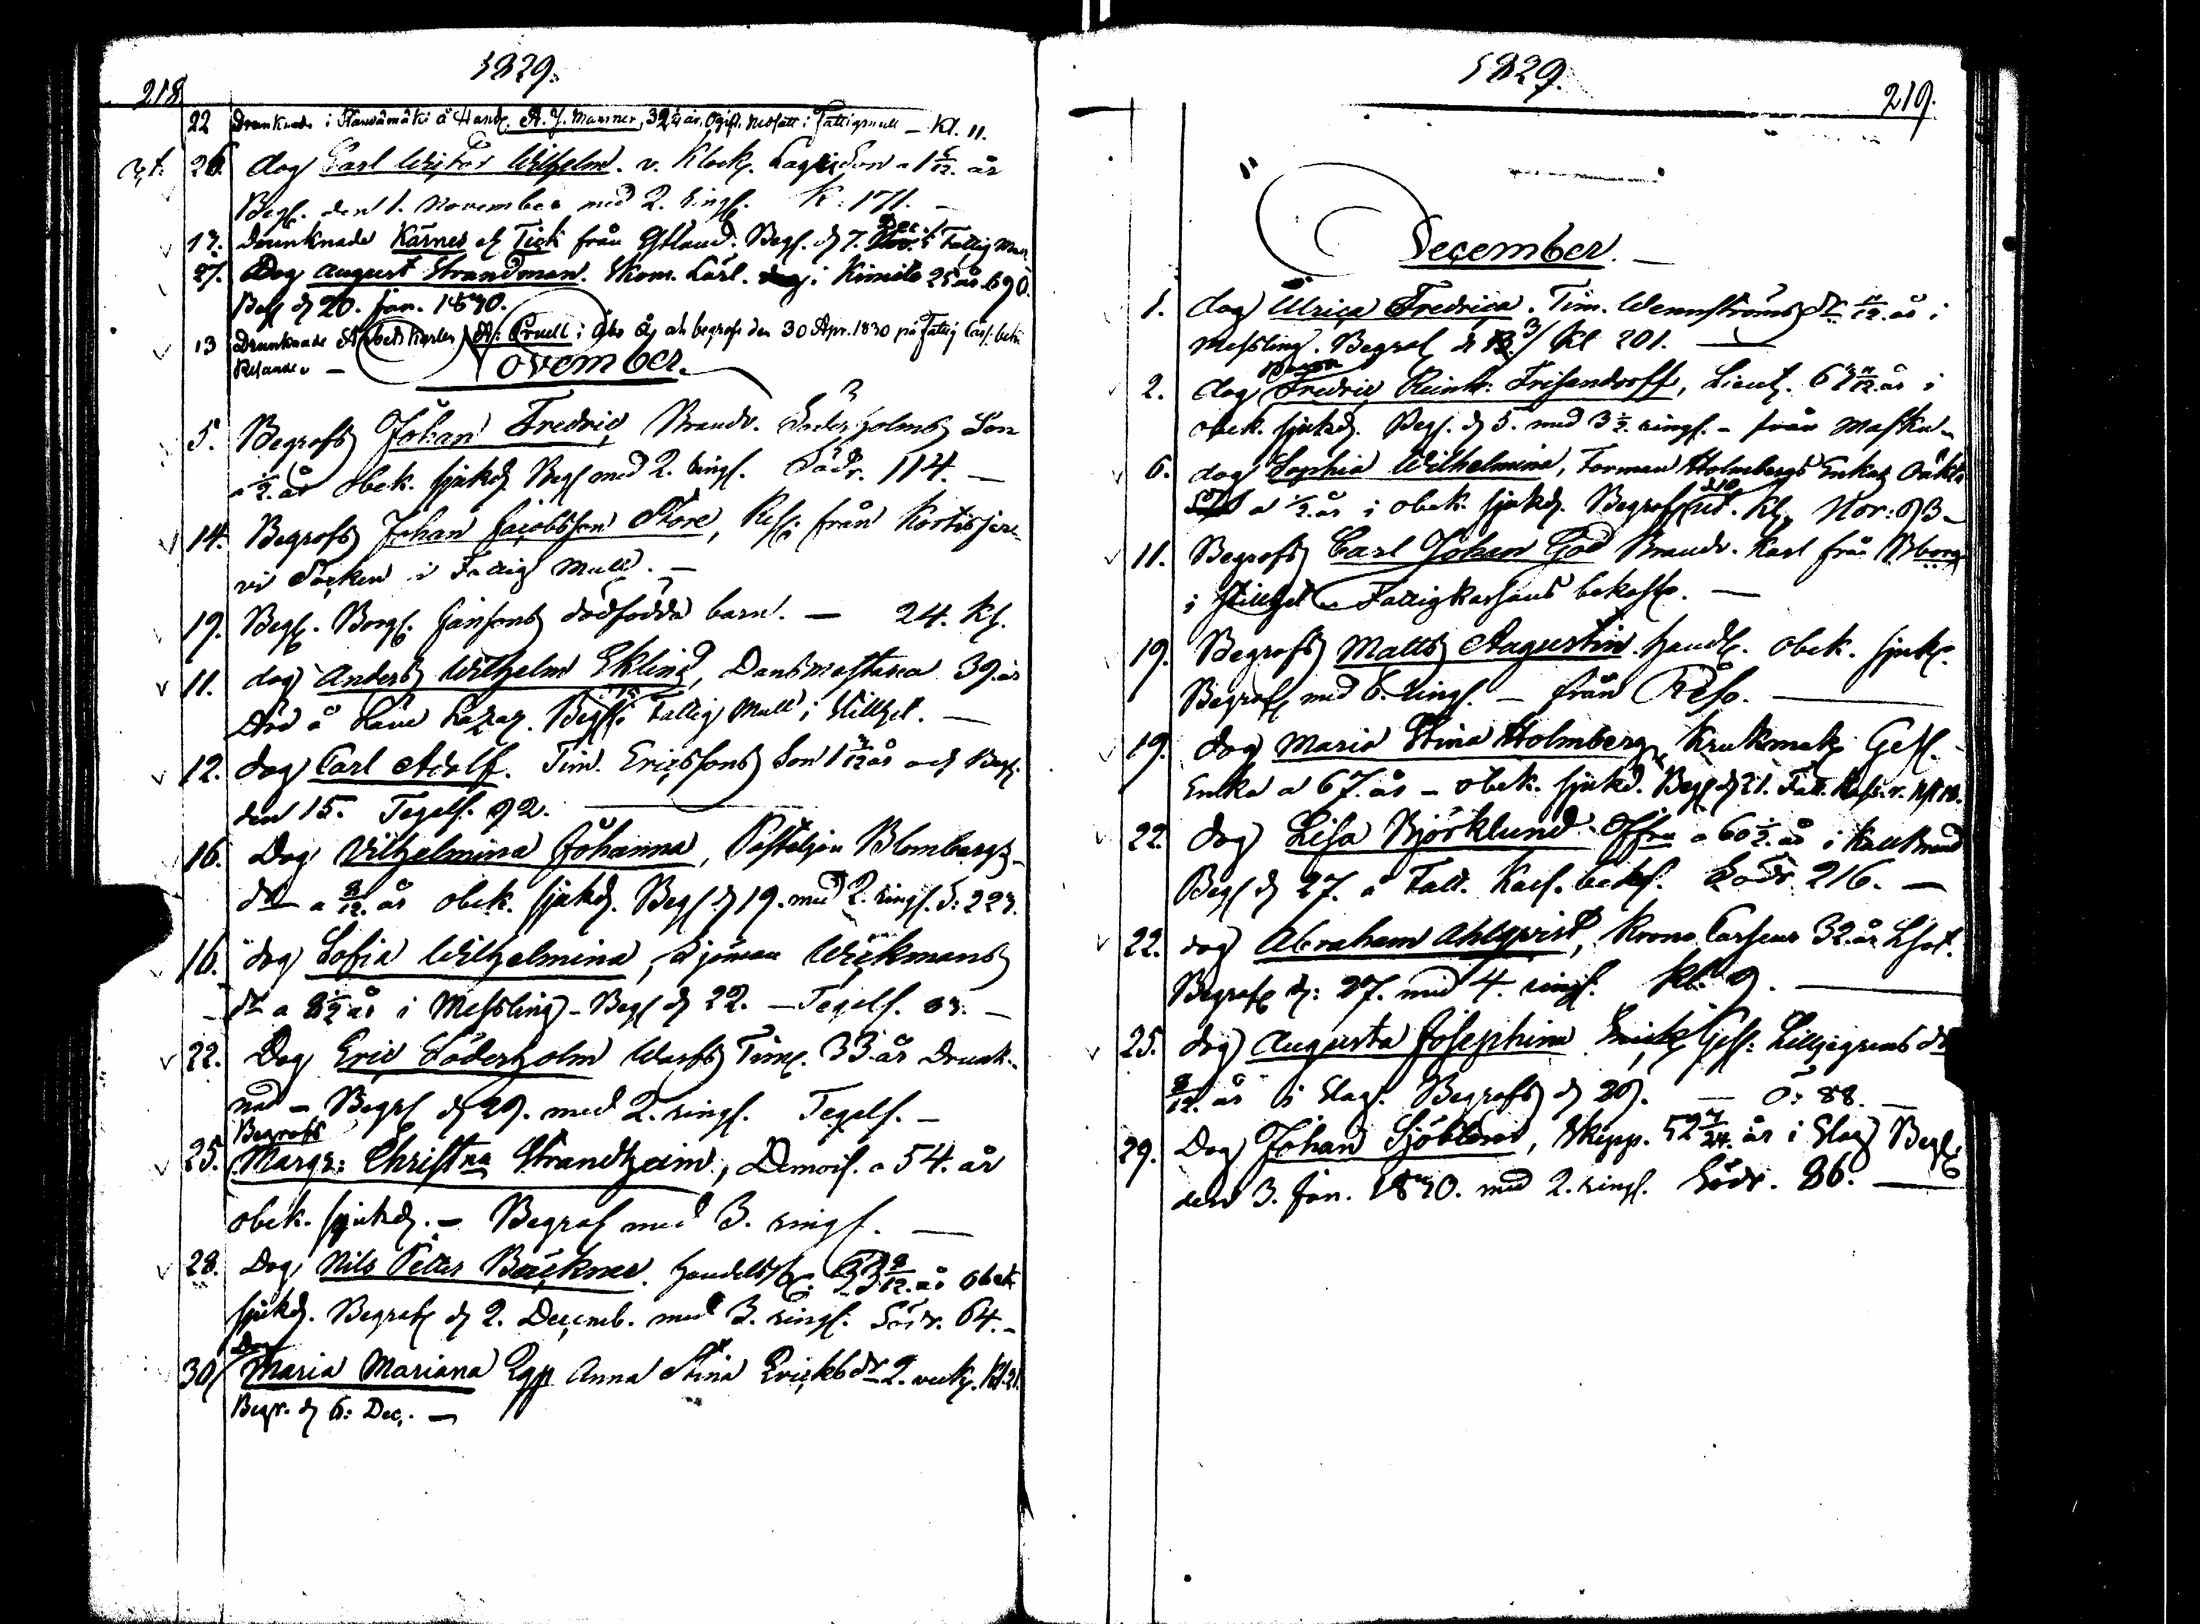 1829.
218
22 Drunknade i å Hand. A. J. Manner, 32 år, Ogift. i Fattigmull – Kl. 11.
26. dog Carl Wictor Wilhelm. v. Klock. Son a 1 5/12. år
Begr. den 1. November med 2. ringn. K: 171. –
13. Drunknade Karnes af Tick från Estland. Begr. d 7. Dec. i Fattig Mu
27. Dog August Strandman. Skom. Lärl. i Kimito 25 år. 690.
Begr d 20. Jan. 1830.
13 Drunknade Arbets Karlen A: Cruell i Åbo Å och begrofs den 30 Apr. 1830 på Fattig Cass. bek.
Resande –
November.
5. Begrofs Johan Fredric Brandv. Söderholms Son
a 1/2. år obek. sjukd. Begr med 2. ringn. Södr. 114. –
14. Begrofs Johan Jacobsson Store, Res. från Kortisjer-
vi Socken i Fattig Mull. –
19. Begr. Borg. Jansons dödfödda barn. – 24. Kl.
11. dog Anders Wilhelm Ekling, Dansmästare 39. år
död å Läne Lazar. Begr. i Fattig Mull i Stillhet. –
12. dog Carl Adolf. Tim. Ericssons Son 1 3/12 år och Begr.
den 15. Tegels. 92.
16. Dog Vilhelmina Johanna, Postiljon Blombergs
dr a 8/12. år obek. sjukd. Begr. d 19. med 2. ringn. S: 223.
16. dog Sofia Wilhelmina, Sjöman Wickmans
dr a 8 1/2 år i Messling – Begr d 22. – Tegels. 83. –
22. Dog Eric Söderholm Warfs Tim. 33. år Drunk-
nad – Begr d 29. med 2. ringn. Tegels. –
Begrofs
25. Margr: Christna Strandheim, Demois. a 54. år
obek. sjukd. – Begrof med 3. ringn. –
28. Dog Nils Petter Bäckman. Handels 33 8/12. år obek
sjukd. Begrof d 2. Decemb. med 3. ringn. Södr. 64. –
Dog
30 Maria Mariana Pgn Anna Stina Ericksdr 2. veck. Kl. 21.
Begr. d 6: Dec. –
1829.
219.
December. –
1. dog Ulrica Fredrica. Tim. Wennströms dr 11/12. år i
Messling. Begrof d 3/ Kl 201. –
2. dog Fredric Reinh: Frisendorff, Lieut. 63 11/12. år i
obek. sjukd. Begr. d 5. med 3 1/2. ringn. – från Masku –
6. dog Sophia Wilhelmina, Forman Holmbergs Enkas Oäkta
a 1/2. år i obek. sjukd. Begrof d 10 Kl. Nor: 93 –
11. Begrofs Carl Johan God Brandv. Karl från Bborg
i Stillhet – Fattigkassans bekostn. –
19. Begrofs Matts Augustin. Handl. obek. sjukd.
Begrof med 6. ringn. – från Reso. –
19. dog Maria Stina Holmberg Krukmak. Ges.
Enka a 67. år – obek. sjukd. Begr d 21. Fatt. Kass.
22. dog Lisa Björklund. Offra a 60 1/2. år i Kallbrand
Begr d 27. a Fatt. Kass. bekost. Södr 216. –
22. dog Abraham Ahlqvist, Krono 32. år
Begrof d: 27. med 4. ringn. Kl. 9. –
25. dog Augusta Josephina Ges: Liljegrens dr
8/12. år i Slag. Begrofs d 29. – Ö: 88. –
29. Dog Johan Sjöblom, Skepp. 52 7/24. år i Slag Begr
den 3. Jan. 1830. med 2. ringn. Södr. 86. –